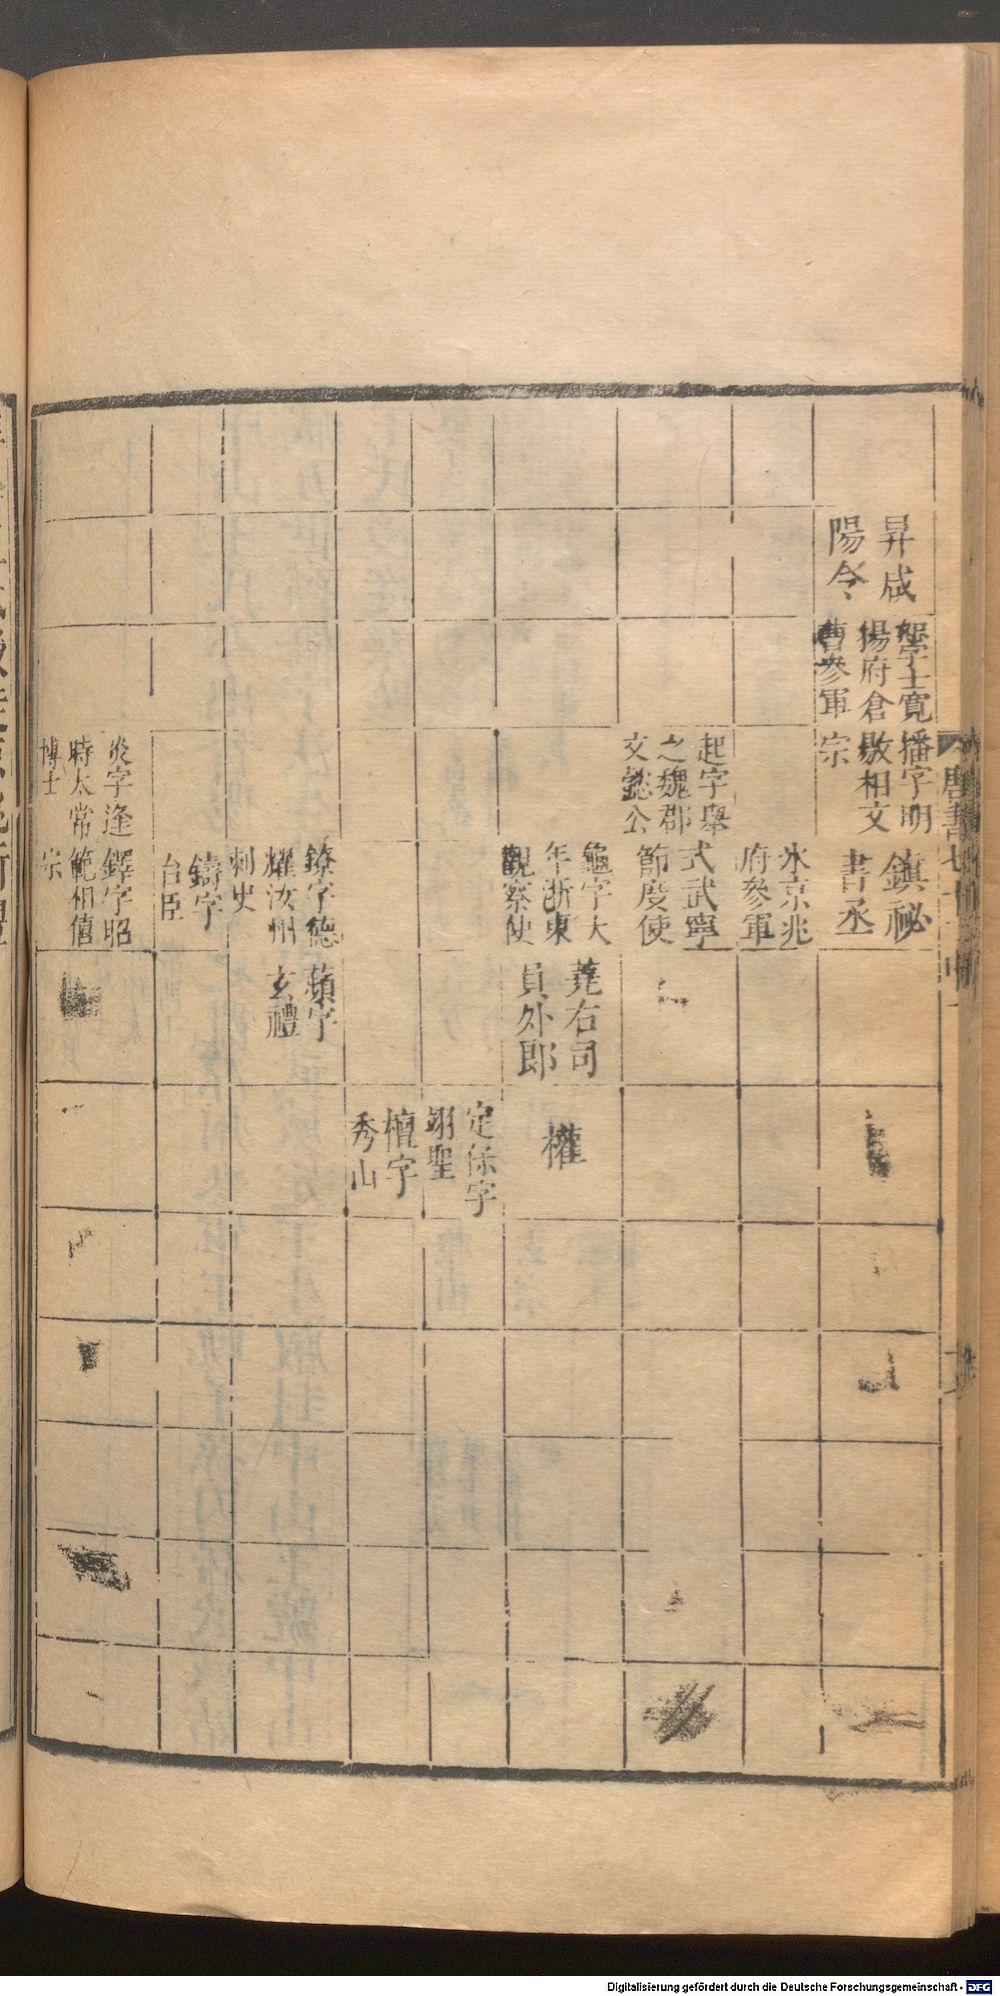 昇咸
陽令
絮字士寬
揚府倉
曹參軍
播字明
敭相文
宗
鎮祕
書丞
氷京兆
府參軍
起字舉
之魏郡
文懿公
式武寧
節度使
龜字大
年浙東
觀察使
蕘右司
員外郎
權
定保字
翊聖
檀字
秀山
鐐字德
耀汝州
刺史
蘋字
玄禮
鑄字
台臣
炎字逢
時太常
博士
鐸字昭
範相僖
宗
唐書七十
Digitalisierung gefördert durch die Deutsche Forschungsgemeinschaft - DFG